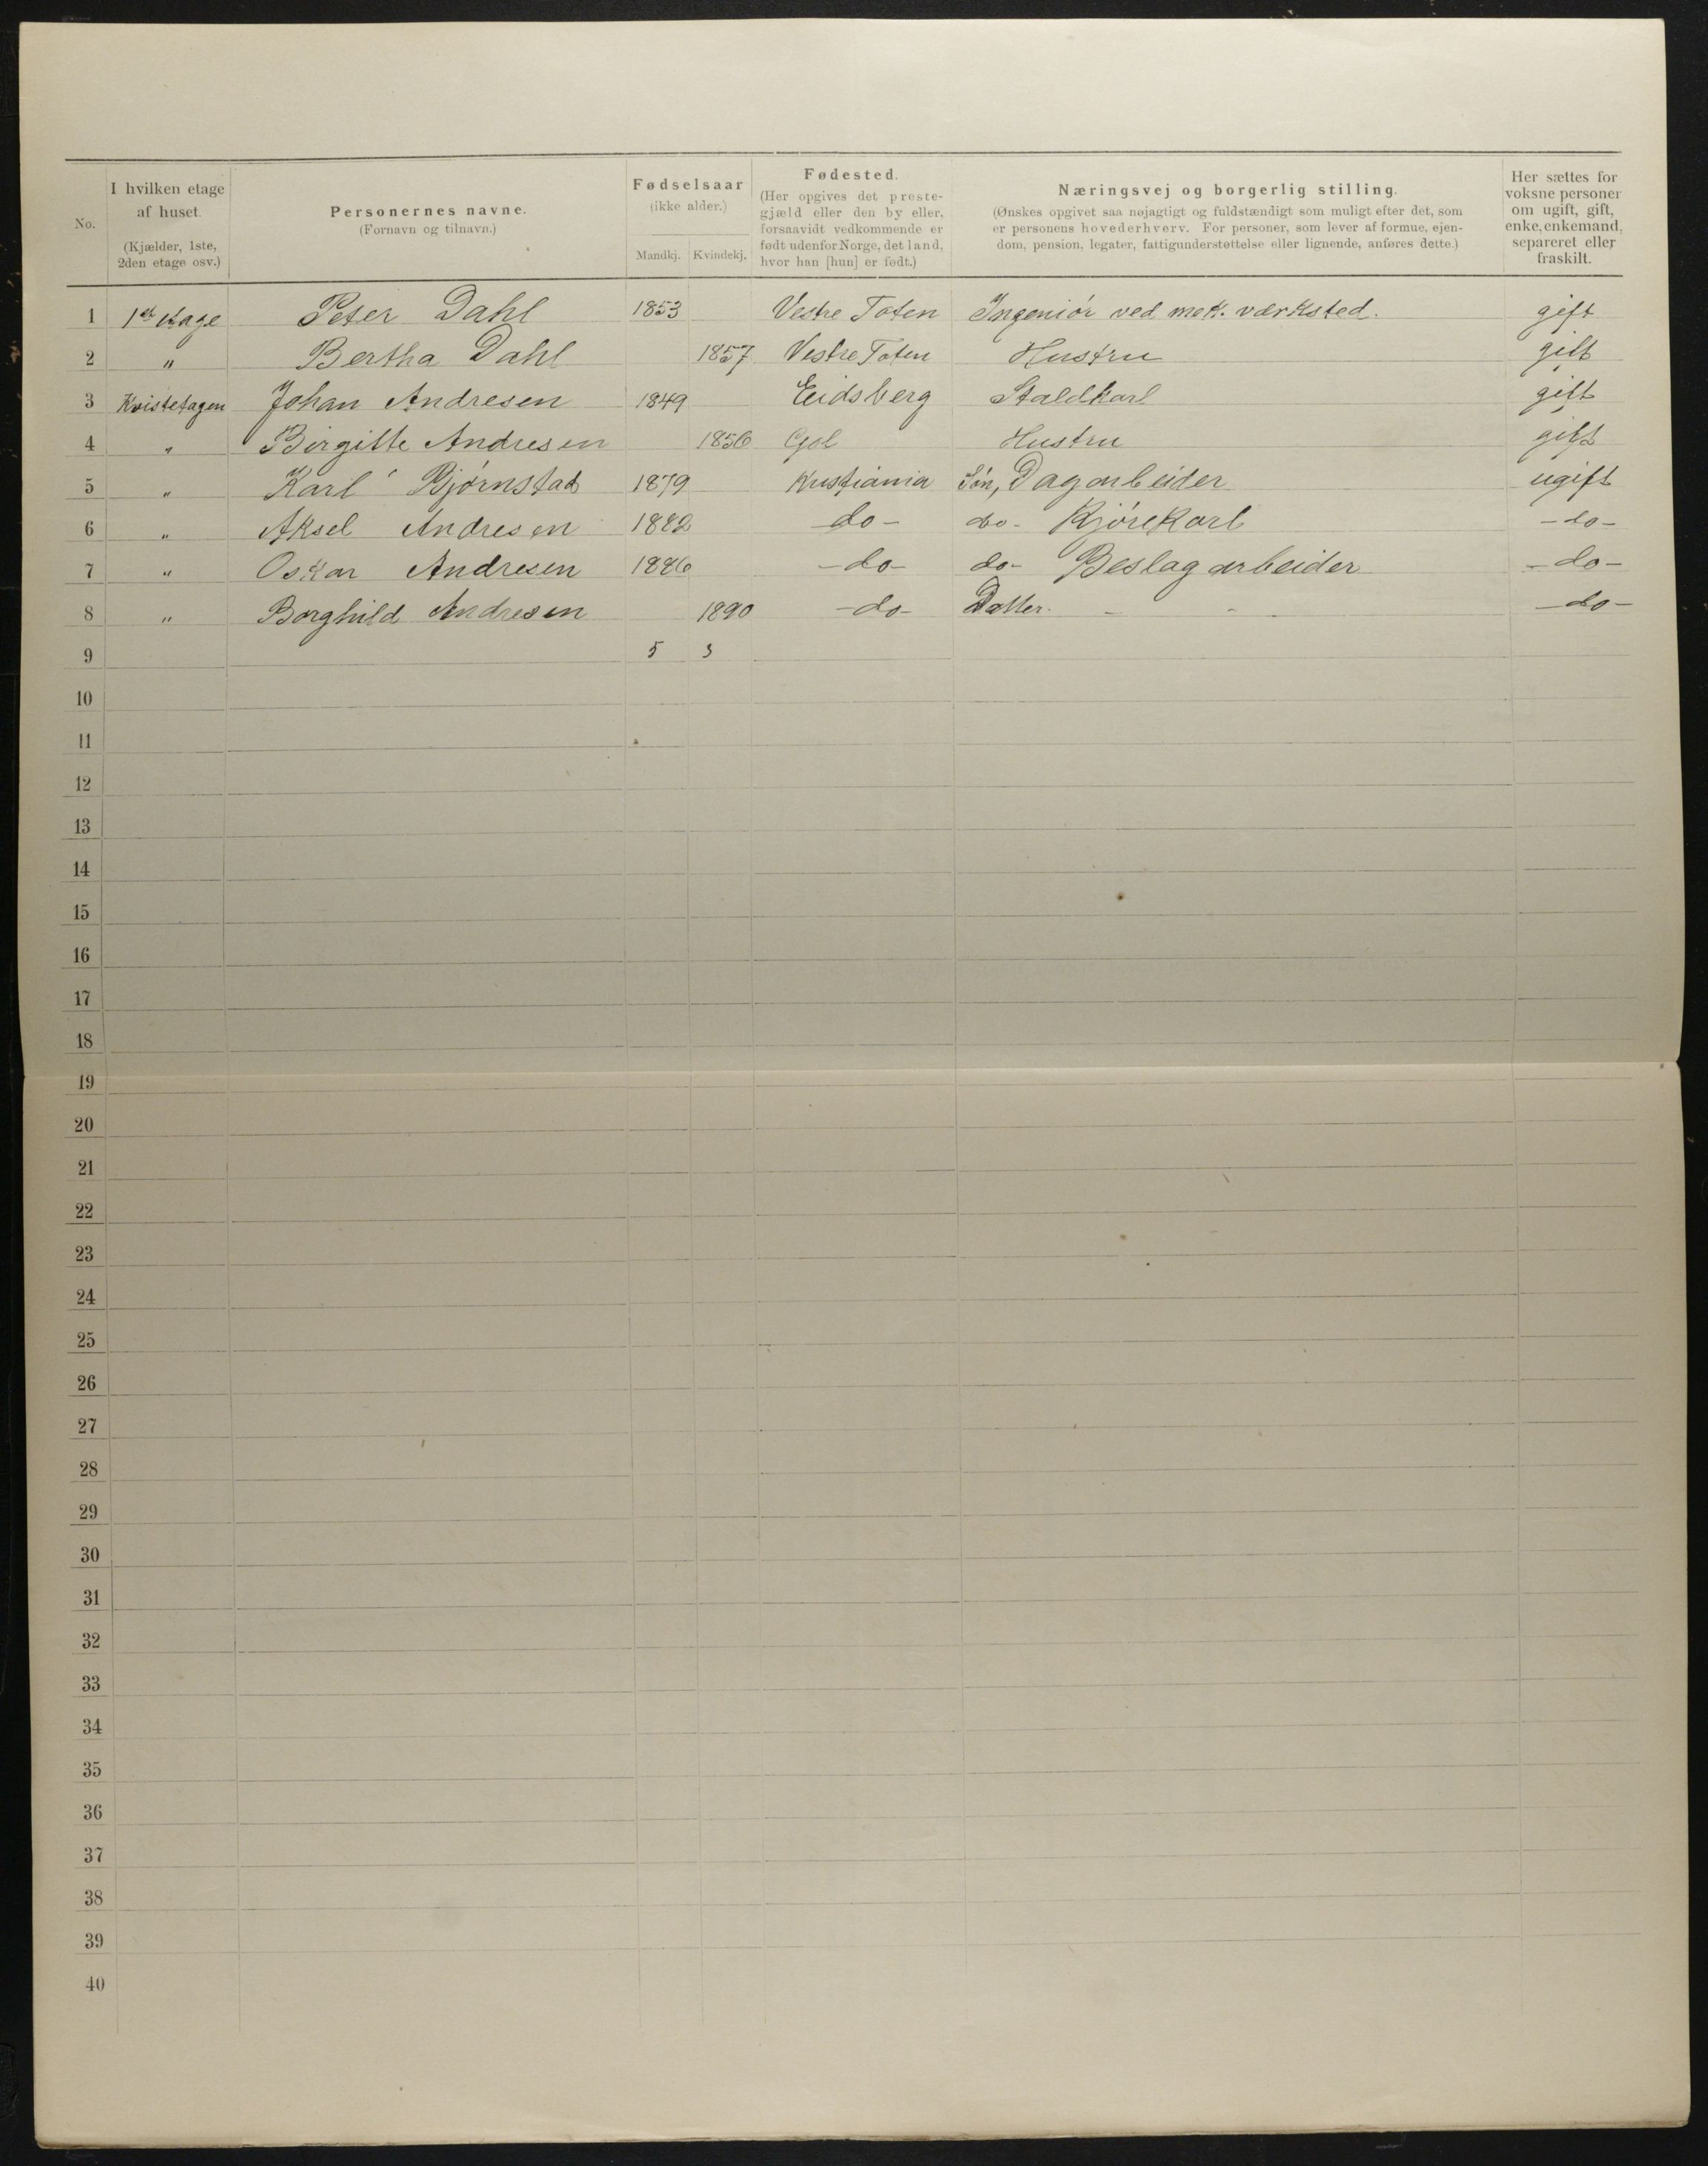 No.
I hvilken etage
af huset.
(Kjælder, 1ste,
2den etage osv.)
Personernes navne.
(Fornavn og tilnavn.)
Fødselsaar
(ikke alder.)
Mandkj. Kvindekj.
Fødested.
(Her opgives det preste-
gjæld eller den by eller,
forsaavidt vedkommende er
født udenfor Norge, det land,
hvor han [hun] er født.)
Næringsvej og borgerlig stilling.
(Ønskes opgivet saa nøjagtigt og fuldstændigt som muligt efter det, som
er personens hovederhverv. For personer, som lever af formue, ejen-
dom, pension, legater, fattigunderstøttelse eller lignende, anføres dette.)
Her sættes for
voksne personer
om ugift, gift,
enke, enkemand,
separeret eller
fraskilt.
1 1st etage Peter Dahl 1853 Vestre Toten Ingeniør ved mek. værksted. gift
2 " Bertha Dahl 1857 Vestre Toten Hustru gift
3 Kvistetagen Johan Andresen 1849 Eidsberg Staldkarl gift
4 " Birgitte Andresen 1856 Gol Hustru gift
5 " Karl Bjørnstad 1879 Kristiania Søn, Dagarbeider ugift
6 " Aksel Andresen 1882 -do- do- Kjørekarl -do-
7 " Oskar Andresen 1886 -do- do- Beslagarbeider -do-
8 " Borghild Andresen 1890 -do- Datter. - - -do-
9 5 3
10
11
12
13
14
15
16
17
18
19
20
21
22
23
24
25
26
27
28
29
30
31
32
33
34
35
36
37
38
39
40